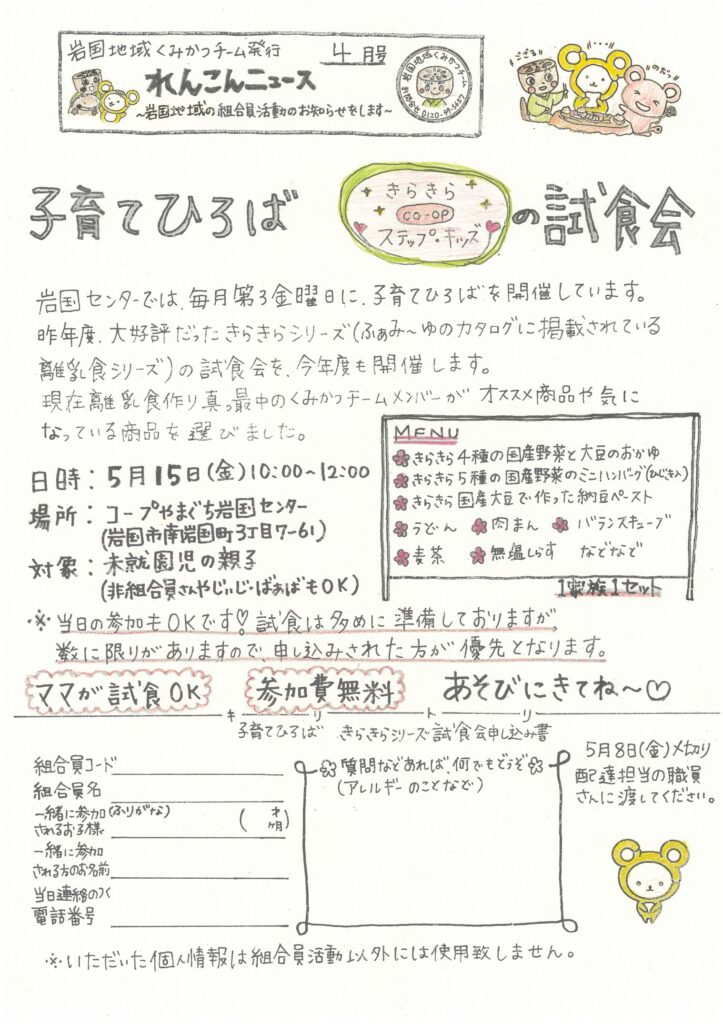 岩国地域くみかつチーム発行 4月号
れんこんニュース
～岩国地域の組合員活動のお知らせをします～
岩国地域くみかつチーム
お問合せ 0120-99-5657
ござる
のだっ
子育てひろば きらきら CO-OP ステップ・キッズ の試食会
岩国センターでは、毎月第3金曜日に、子育てひろばを開催しています。
昨年度、大好評だったきらきらシリーズ(ふぁみ～ゆのカタログに掲載されている
離乳食シリーズ)の試食会を、今年度も開催します。
現在離乳食作り真っ最中のくみかつチームメンバーが オススメ商品や気に
なっている商品を選びました。
日時：5月15日(金)10:00～12:00
場所：コープやまぐち岩国センター
(岩国市南岩国町3丁目7-61)
対象：未就園児の親子
(非組合員さんやじぃじ・ばぁばもOK)
MENU
きらきら4種の国産野菜と大豆のおかゆ
きらきら5種の国産野菜のミニハンバーグ(ひじき入)
きらきら国産大豆で作った納豆ペースト
うどん 肉まん バランスキューブ
麦茶 無塩しらす などなど
1家族1セット
※当日の参加もOKです♡試食は多めに準備しておりますが、
数に限りがありますので、申し込みされた方が優先となります。
ママが試食OK 参加費無料 あそびにきてね～♡
キリトリ
子育てひろば きらきらシリーズ試食会申し込み書
組合員コード
組合員名
一緒に参加(ふりがな)
されるお子様 (才 ヶ月)
一緒に参加
される方のお名前
当日連絡のつく
電話番号
質問などあれば、何でもどうぞ
(アレルギーのことなど)
5月8日(金)〆切り
配達担当の職員
さんに渡してください。
※いただいた個人情報は組合員活動以外には使用致しません。